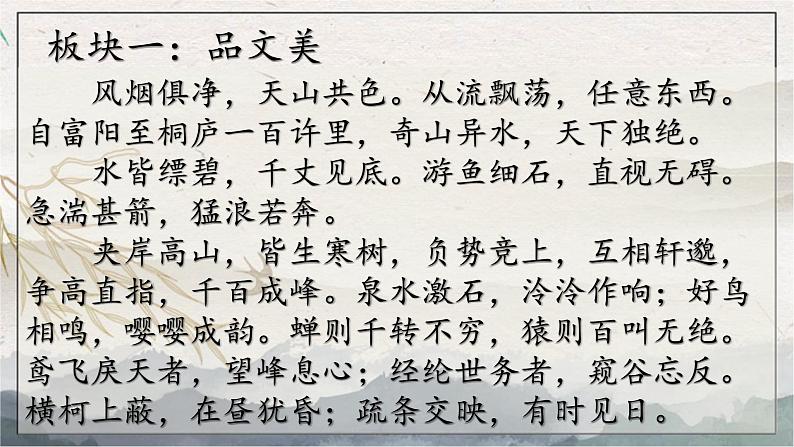 板块一：品文美
风烟俱净，天山共色。从流飘荡，任意东西。
自富阳至桐庐一百许里，奇山异水，天下独绝。
水皆缥碧，千丈见底。游鱼细石，直视无碍。
急湍甚箭，猛浪若奔。
夹岸高山，皆生寒树，负势竞上，互相轩邈，
争高直指，千百成峰。泉水激石，泠泠作响；好鸟
相鸣，嘤嘤成韵。蝉则千转不穷，猿则百叫无绝。
鸢飞戾天者，望峰息心；经纶世务者，窥谷忘反。
横柯上蔽，在昼犹昏；疏条交映，有时见日。